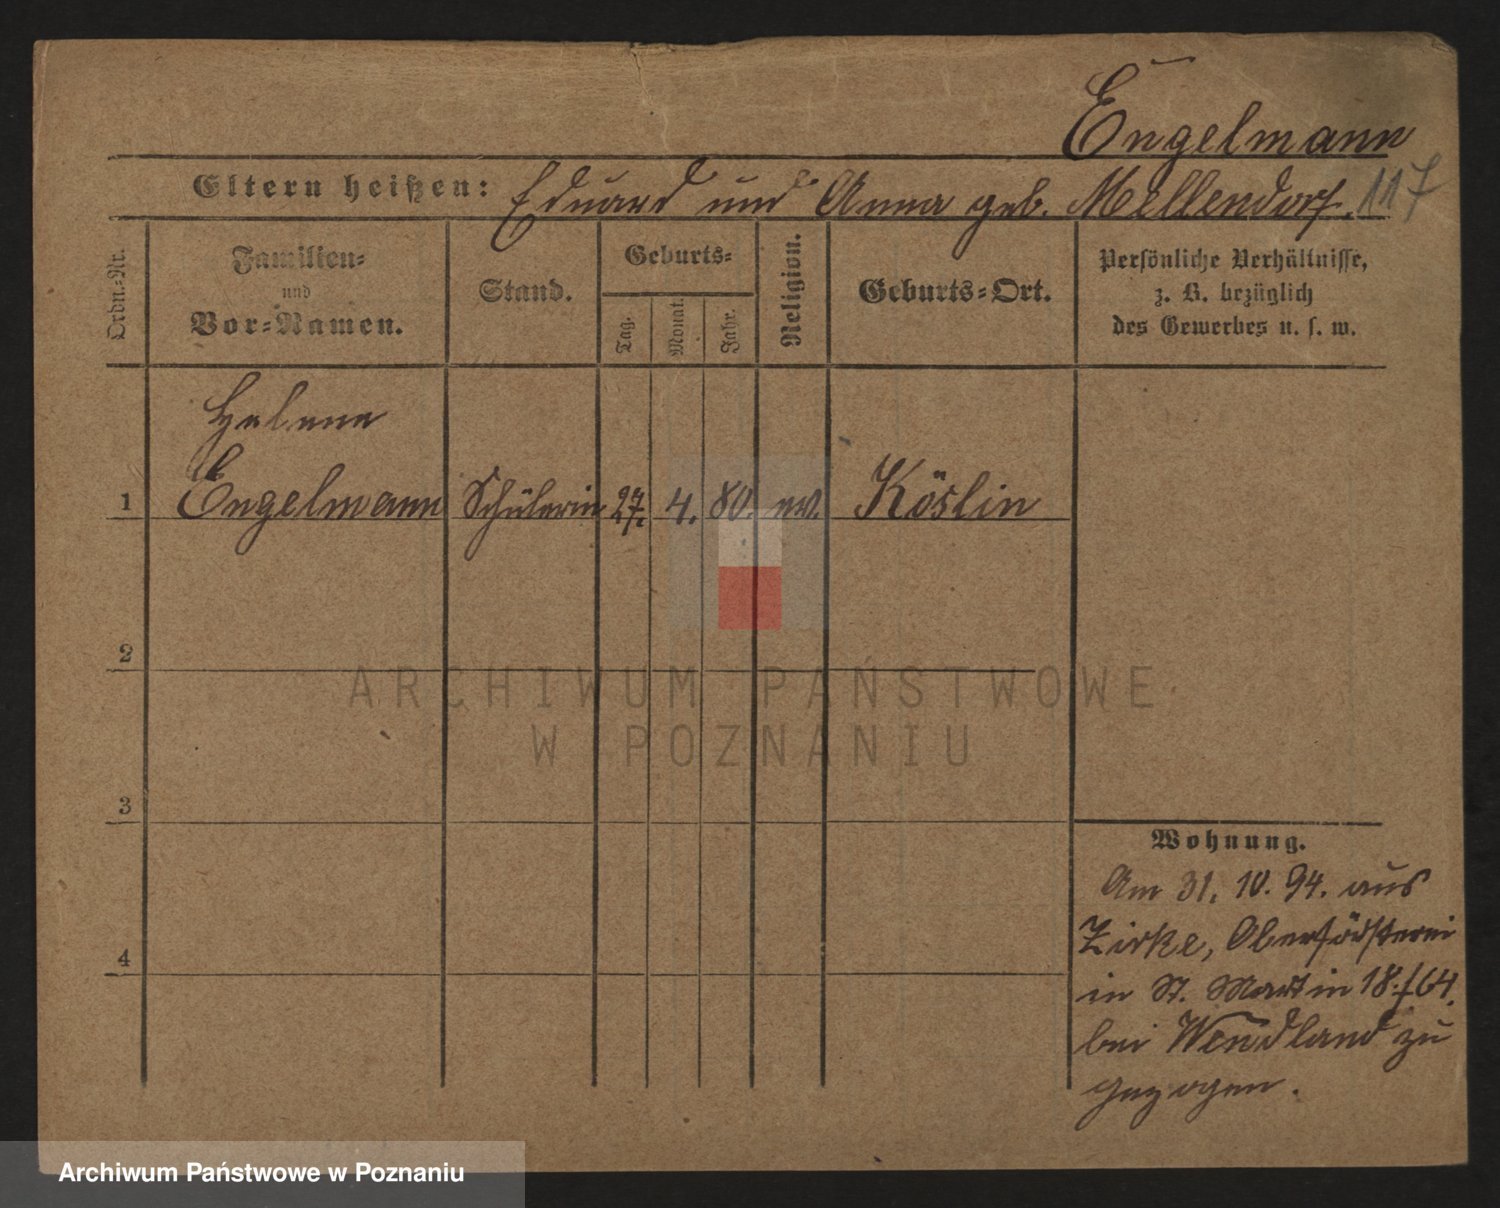 Engelmann
Eltern heißen: Eduard und Anna geb. Mellendorf. 117
Ordn.-Nr.
Familien-
und
Vor-Namen.
Stand.
Geburts-
Tag.
Monat.
Jahr.
Religion.
Geburts-Ort.
Persönliche Verhältnisse,
z. B. bezüglich
des Gewerbes u. s. w.
Helene
1 Engelmann Schülerin 27. 4. 80. ev. Köslin
2
3
4
Wohnung.
Am 31. 10. 94. aus
Zirke, Oberförsterei
in St. Martin 18./64.
bei Wendland zu
gezogen.
ARCHIWUM PAŃSTWOWE
W POZNANIU
Archiwum Państwowe w Poznaniu